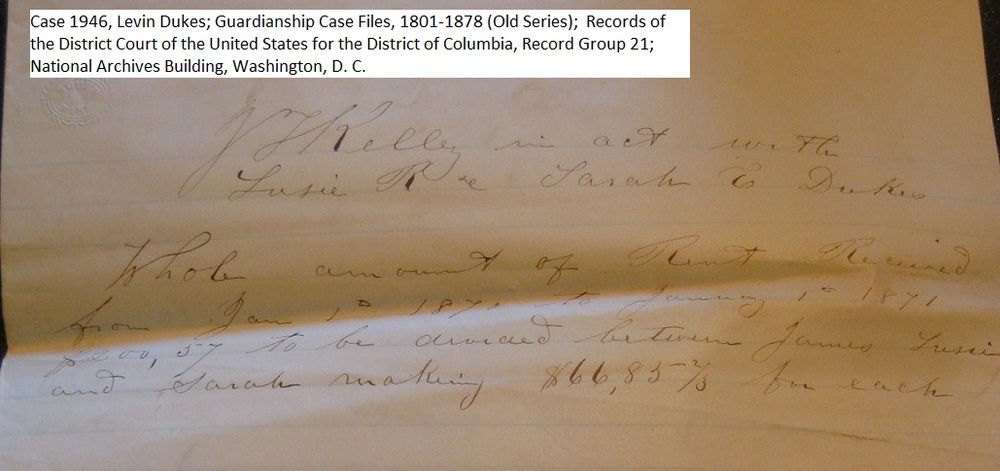 Case 1946, Levin Dukes; Guardianship Case Files, 1801-1878 (Old Series); Records of
the District Court of the United States for the District of Columbia, Record Group 21;
National Archives Building, Washington, D. C.
J T Kelley in act with
Susie R & Sarah E Dukes
Whole amount of Rent Received
from Jan 1st 1870 to January 1st 1871
$200,57 to be divided between James Susie
and Sarah making $66,85 2/3 for each